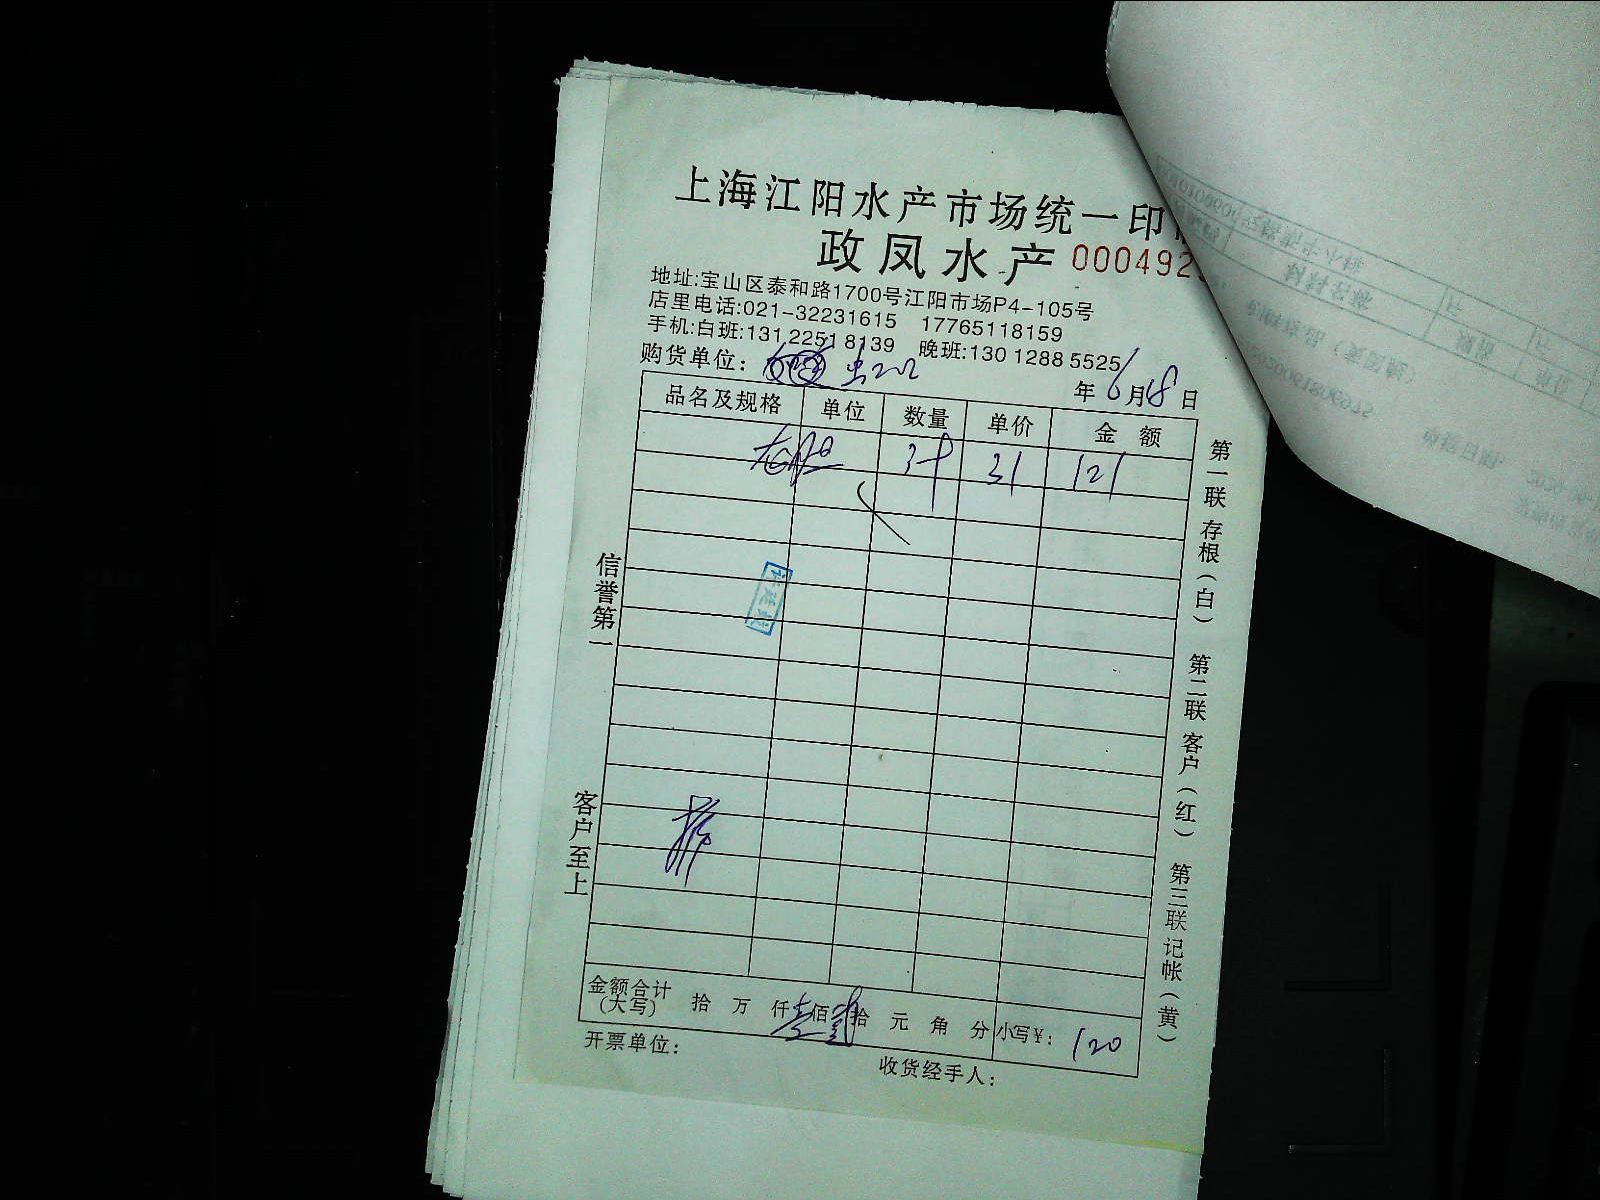 上海江阳水产市场统一印
政凤水产 000492
地址:宝山区泰和路1700号江阳市场P4-105号
店里电话:021-32231615 17765118159
手机:白班:131 2251 8139 晚班:130 1288 5525
购货单位: 年 6月18日
品名及规格 单位 数量 单价 金 额
31 121
信誉第一
客户至上
金额合计(大写) 拾 万 仟 壹 佰 贰 拾 元 角 分 小写¥: 120
开票单位:
收货经手人:
第一联 存根(白) 第二联 客户(红) 第三联 记帐(黄)